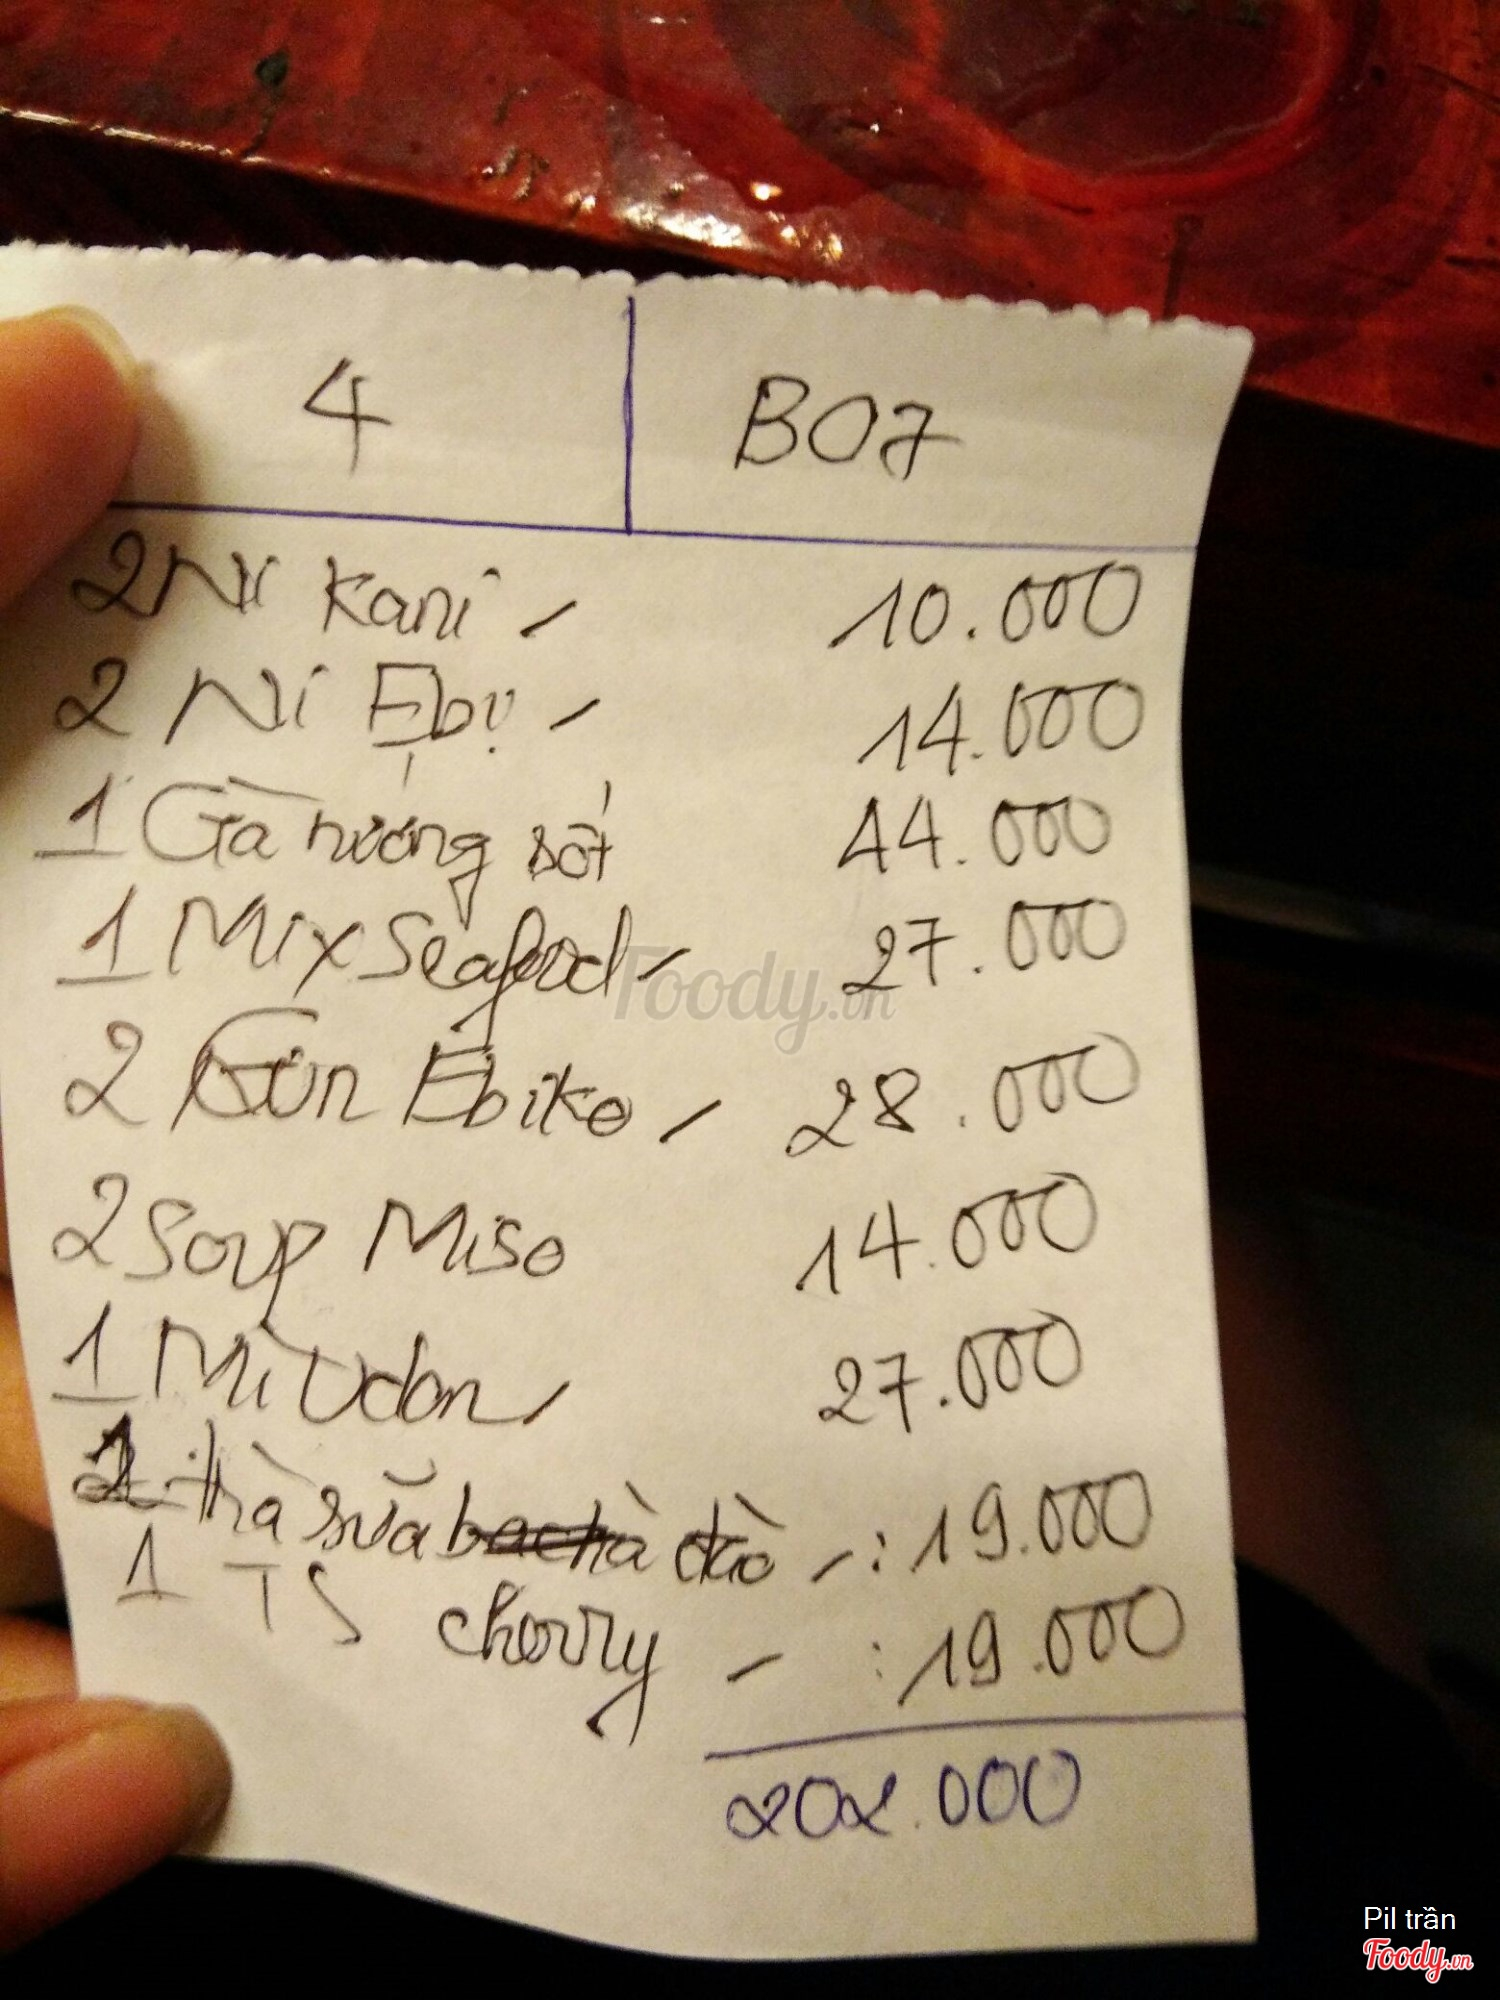 4 B07
2 Ni Kani - 10.000
2 Ni Ebi - 14.000
1 Gà nướng sốt 44.000
1 Mix Seafood - 27.000
2 Gun Ebiko - 28.000
2 Soup Miso 14.000
1 Mì Udon - 27.000
1 trà sữa đào - : 19.000
1 TS cherry - : 19.000
202.000
Foody.vn
Pil trần
Foody.vn